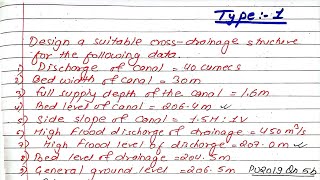 Type:- 1
Design a suitable cross-drainage structure
for the following data.
1) Discharge of canal = 40 cumecs
2) Bed width of canal = 30m
3) full supply depth of the canal = 1.6m
4) Bed level of canal = 206.4 m
5) Side slope of canal = 1.5H:1V
6) High flood discharge of drainage = 450 m³/s
7) High flood level of discharge = 207.0 m
8) Bed level of drainage = 204.5m
9) General ground level = 206.5m PU2019 Qn 5b